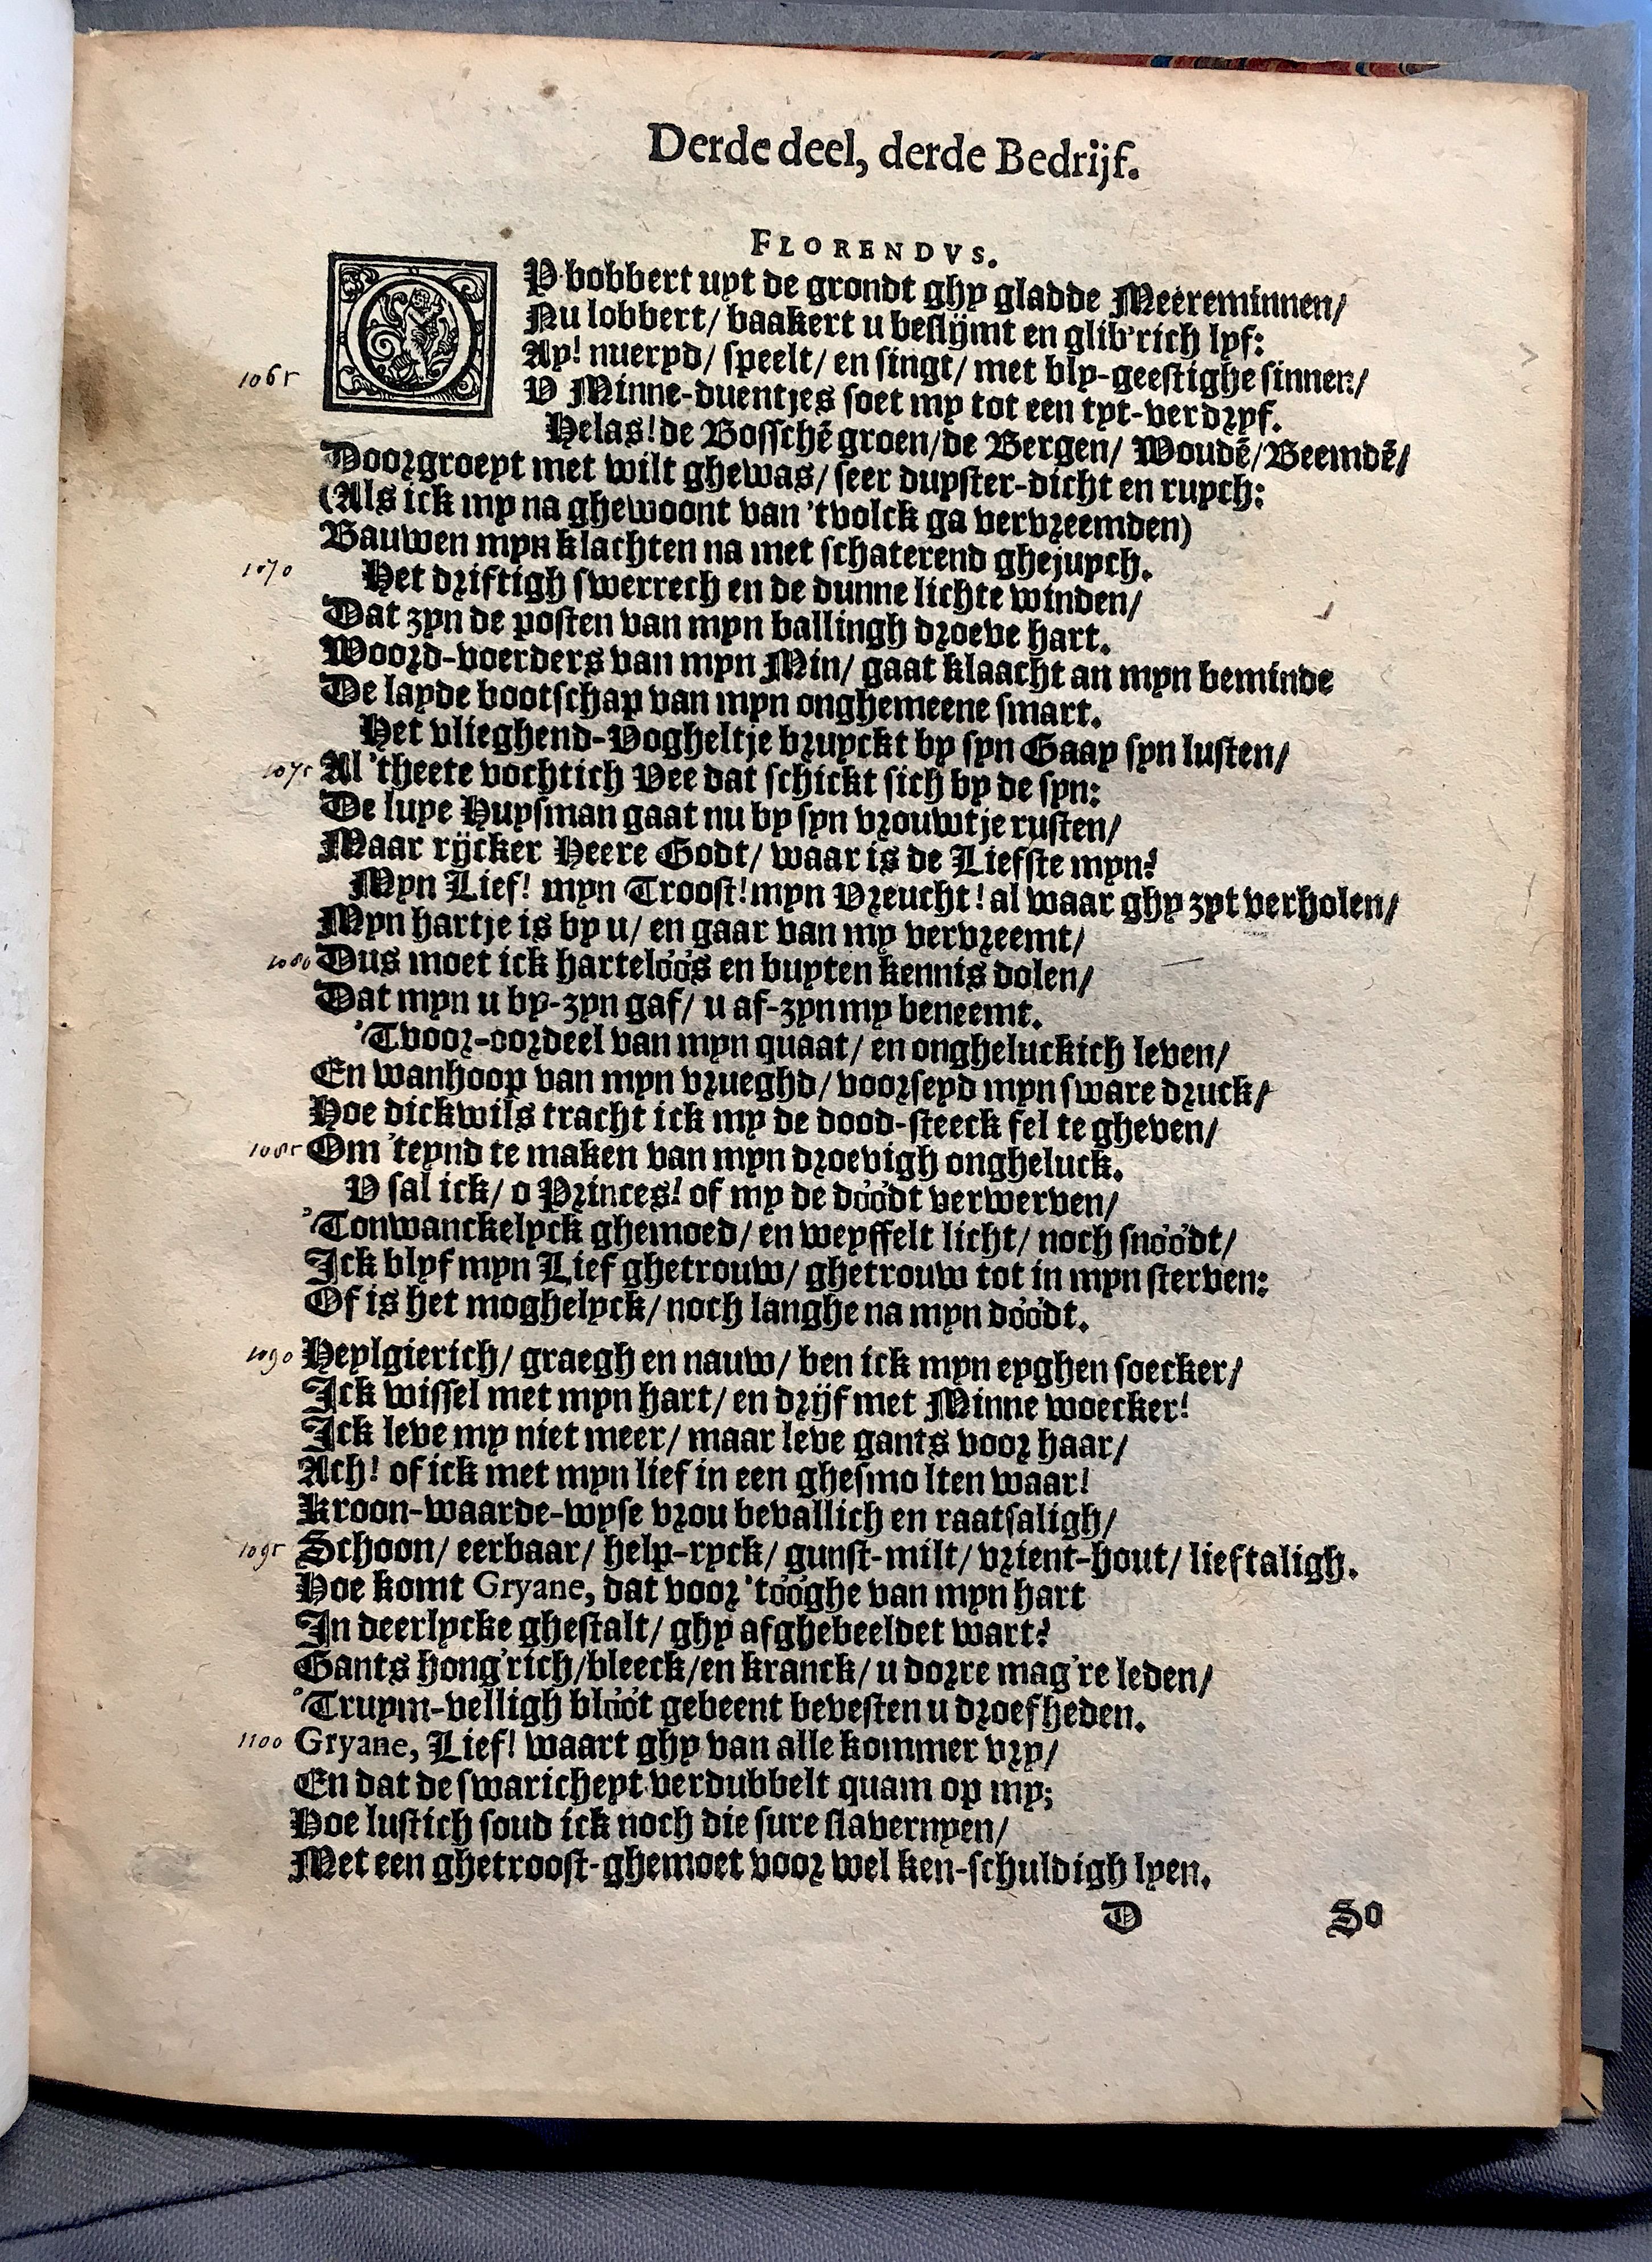 Derde deel, derde Bedrijf.
FLORENDVS.
OP bobbert uyt de grondt ghy gladde Meereminnen/
Nu lobbert/ baakert u beslijmt en glib'rich lyf:
1065 Ay! nueryd/ speelt/ en singt/ met bly-geestighe sinnen/
V Minne-duentjes soet my tot een tyt-verdryf.
Helas! de Bosschē groen/de Bergen/ Woudē/Beemdē/
Doorgroeyt met wilt ghewas/ seer duyster-dicht en ruych:
(Als ick my na ghewoont van 'tvolck ga vervreemden)
Bauwen myn klachten na met schaterend ghejuych.
1070 Het driftigh swerrech en de dunne lichte winden/
Dat zyn de posten van myn ballingh droeve hart.
Woord-voerders van myn Min/ gaat klaacht an myn beminde
De layde bootschap van myn onghemeene smart.
Het vlieghend-Vogheltje bruyckt by syn Gaay syn lusten/
1075 Al 'theete vochtich Vee dat schickt sich by de syn:
De luye Huysman gaat nu by syn vrouwtje rusten/
Maar rijcker Heere Godt/ waar is de Liefste myn?
Myn Lief! myn Troost! myn Vreucht! al waar ghy zyt verholen/
Myn hartje is by u/ en gaar van my vervreemt/
1080 Dus moet ick harteloos en buyten kennis dolen/
Dat myn u by-zyn gaf/ u af-zyn my beneemt.
'Tvoor-oordeel van myn quaat/ en ongheluckich leven/
En wanhoop van myn vrueghd/ voorseyd myn sware druck/
Hoe dickwils tracht ick my de dood-steeck fel te gheven/
1085 Om 'teynd te maken van myn droevigh ongheluck.
V sal ick/ o Princes! of my de doodt verwerven/
'Tonwanckelyck ghemoed/ en weyffelt licht/ noch snoodt/
Ick blyf myn Lief ghetrouw/ ghetrouw tot in myn sterven:
Of is het moghelyck/ noch langhe na myn doodt.
1090 Heylgierich/ graegh en nauw/ ben ick myn eyghen soecker/
Ick wissel met myn hart/ en drijf met Minne woecker!
Ick leve my niet meer/ maar leve gants voor haar/
Ach! of ick met myn lief in een ghesmo lten waar!
Kroon-waarde-wyse vrou bevallich en raatsaligh/
1095 Schoon/ eerbaar/ help-ryck/ gunst-milt/ vrient-hout/ lieftaligh.
Hoe komt Gryane, dat voor 'tooghe van myn hart
In deerlycke ghestalt/ ghy afghebeeldet wart?
Gants hong'rich/bleeck/en kranck/ u dorre mag're leden/
'Truym-velligh bloot gebeent bevesten u droefheden.
1100 Gryane, Lief! waart ghy van alle kommer vry/
En dat de swaricheyt verdubbelt quam op my;
Hoe lustich soud ick noch die sure slavernyen/
Met een ghetroost-ghemoet voor wel ken-schuldigh lyen.
D So